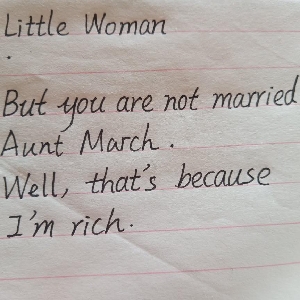 Little Woman
.
But you are not married
Aunt March.
Well, that's because
I'm rich.